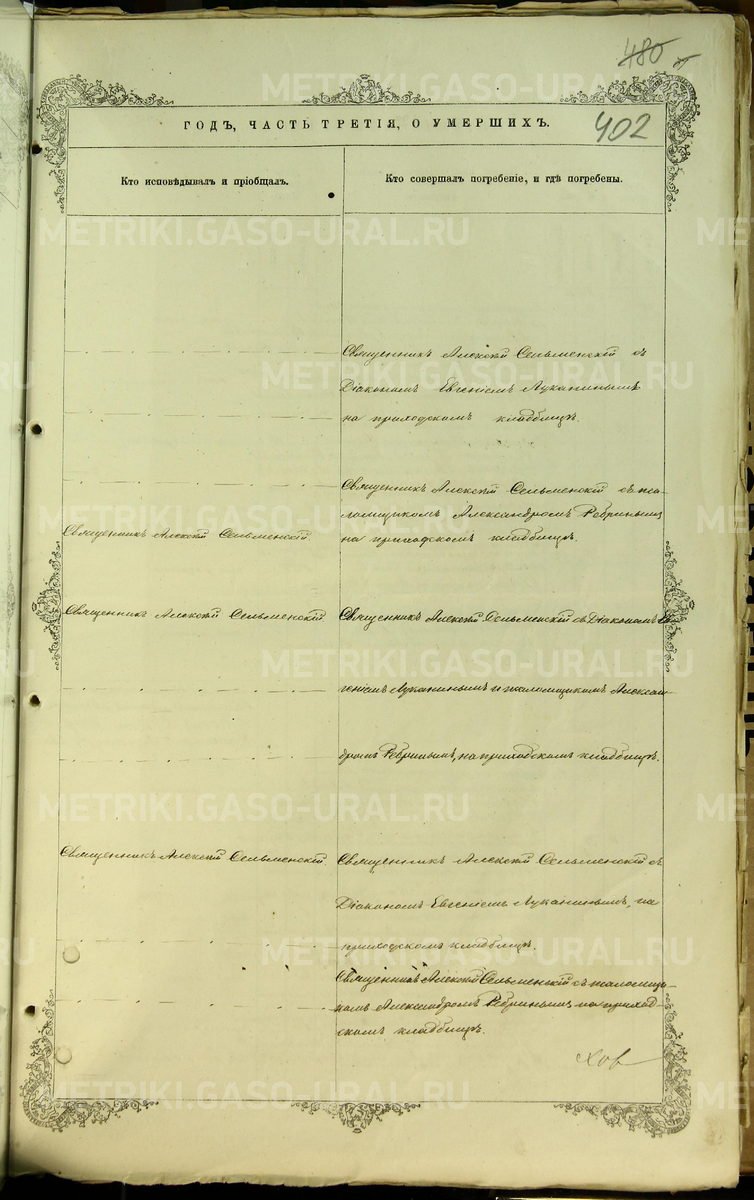 480
402
ГОДЪ, ЧАСТЬ ТРЕТІЯ, О УМЕРШИХЪ.
Кто исповѣдывалъ и пріобщалъ.
Кто совершалъ погребеніе, и гдѣ погребены.
Священникъ Алексій Сельменскій съ
Діакономъ Евгеніемъ Луканинымъ
на приходскомъ кладбищѣ.
Священникъ Алексій Сельменскій съ пса-
ломщикомъ Александромъ Ребринымъ
на приходскомъ кладбищѣ.
Священникъ Алексій Сельменскій.
Священникъ Алексій Сельменскій
Священникъ Алексій Сельменскій съ Діакономъ Ев-
геніемъ Луканинымъ и псаломщикомъ Алексан-
дромъ Ребринымъ, на приходскомъ кладбищѣ.
Священникъ Алексій Сельменскій.
Священникъ Алексій Сельменскій съ
Діакономъ Евгеніемъ Луканинымъ, на
приходскомъ кладбищѣ.
Священникъ Алексій Сельменскій съ псаломщи-
комъ Александромъ Ребринымъ на приход-
скомъ кладбищѣ.
METRIKI.GASO-URAL.RU